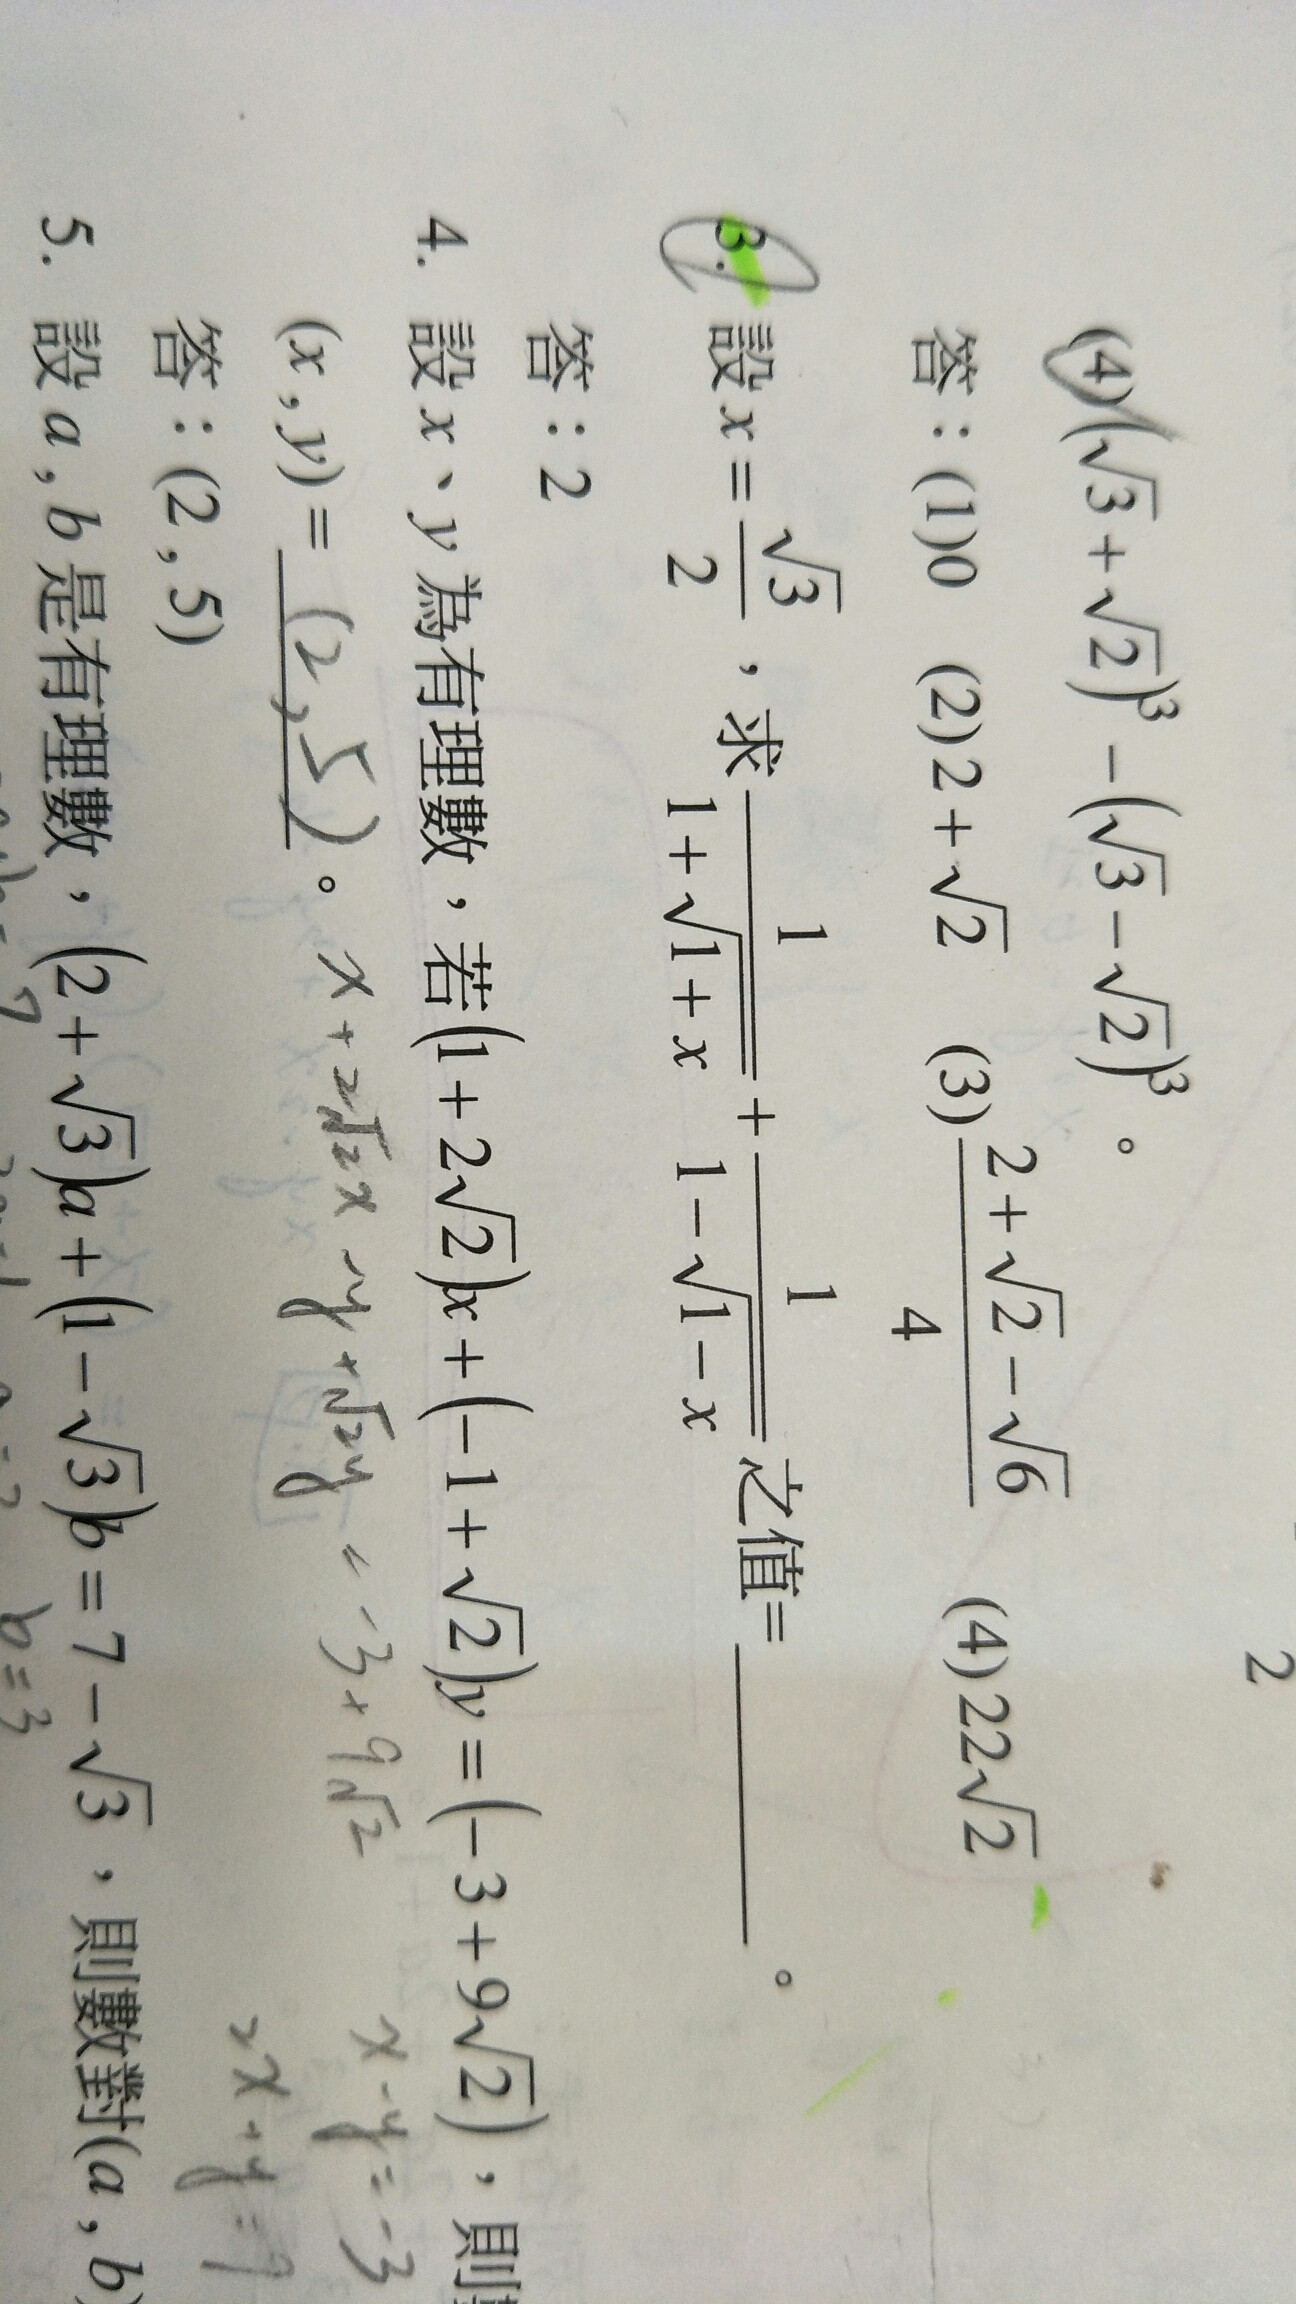 2
(4)(√3+√2)³−(√3−√2)³。
答：(1)0 (2)2+√2 (3)(2+√2−√6)/4 (4)22√2
3. 設x=√3/2，求1/(1+√(1+x))+1/(1−√(1−x))之值=______。
答：2
4. 設x、y為有理數，若(1+2√2)x+(−1+√2)y=(−3+9√2)，則
(x,y)=(2,5)。
x+2√2x-y+√2y=-3+9√2
x-y=-3
2x+y=9
答：(2,5)
5. 設a,b是有理數，(2+√3)a+(1−√3)b=7−√3，則數對(a,b)
b=3